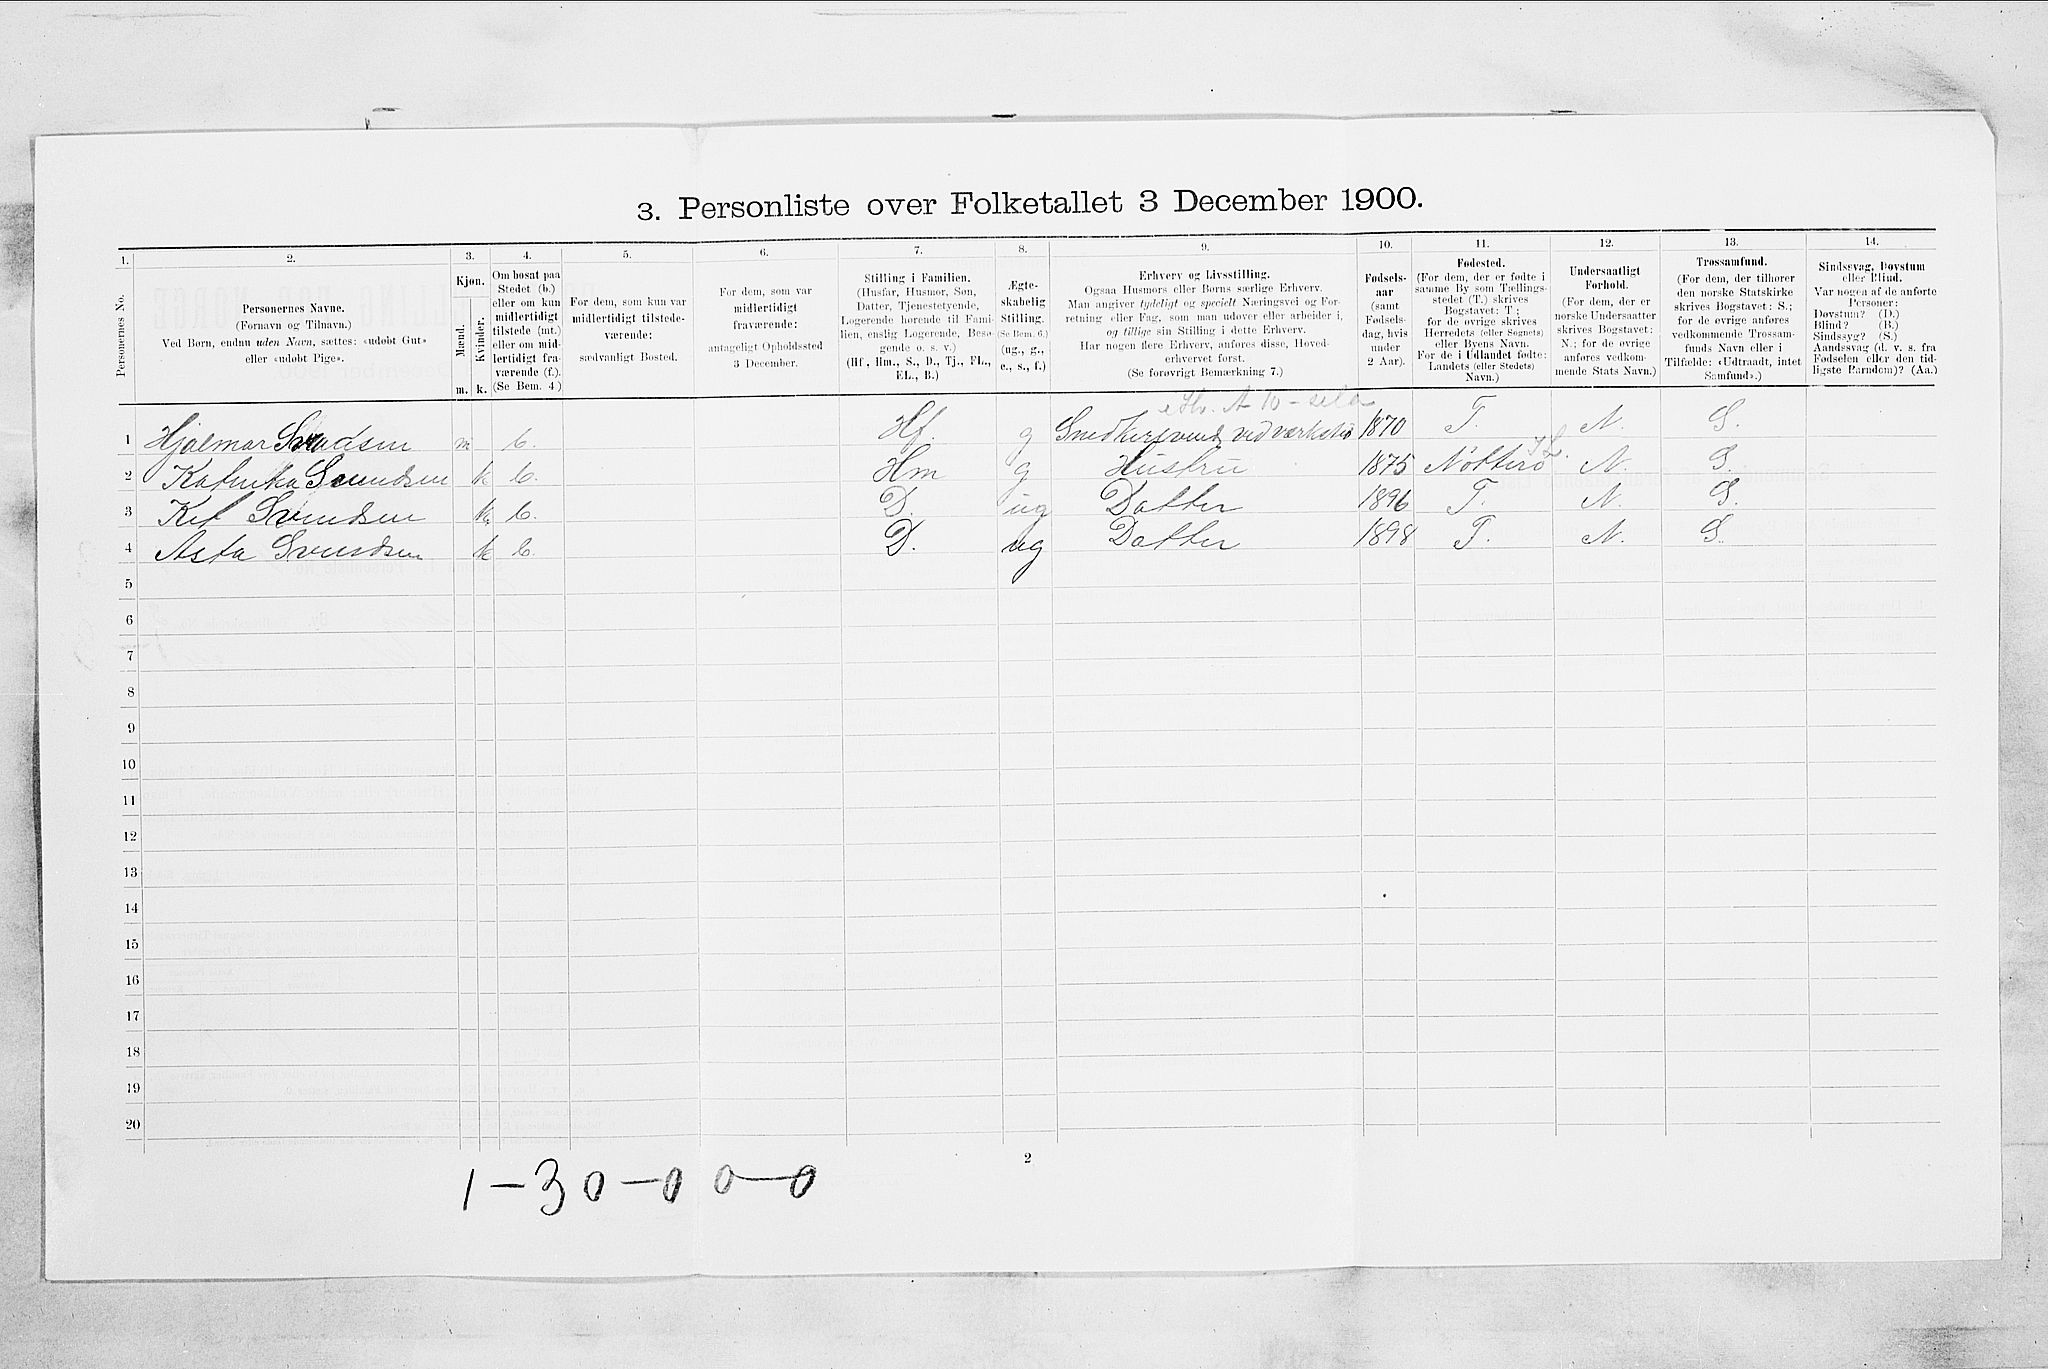 3. Personliste over Folketallet 3 December 1900.
1. 2. 3. 4. 5. 6. 7. 8. 9. 10. 11. 12. 13. 14.
Personernes No.
Personernes Navne.
(Fornavn og Tilnavn.)
Ved Børn, endnu uden Navn, sættes: «udøbt Gut»
eller «udøbt Pige».
Kjøn.
Mænd.
Kvinder.
m. k.
Om bosat paa
Stedet (b.)
eller om kun
midlertidigt
tilstede (mt.)
eller om mid-
lertidigt fra-
værende (f.).
(Se Bem. 4.)
For dem, som kun var
midlertidigt tilstede-
værende:
sædvanligt Bosted.
For dem, som var
midlertidigt
fraværende:
antageligt Opholdssted
3 December.
Stilling i Familien.
(Husfar, Husmor, Søn,
Datter, Tjenestetyende,
Logerende hørende til Fami-
lien, enslig Logerende, Besø-
gende o. s. v.)
(Hf., Hm., S., D., Tj., FL.,
EL., B.)
Ægte-
skabelig
Stilling.
(Se Bem. 6.)
(ug., g.,
e., s., f.)
Erhverv og Livsstilling.
Ogsaa Husmors eller Børns særlige Erhverv.
Man angiver tydeligt og specielt Næringsvei og For-
retning eller Fag, som man udøver eller arbeider i,
og tillige sin Stilling i dette Erhverv.
Har nogen flere Erhverv, anføres disse, Hoved-
erhvervet først.
(Se forøvrigt Bemærkning 7.)
Fødsels-
aar
(samt
Fødsels-
dag, hvis
under
2 Aar).
Fødested.
(For dem, der er fødte i
samme By som Tællings-
stedet (T.) skrives
Bogstavet: T;
for de øvrige skrives
Herredets (eller Sognets)
eller Byens Navn.
For de i Udlandet fødte:
Landets (eller Stedets)
Navn.)
Undersaatligt
Forhold.
(For dem, der er
norske Undersaatter
skrives Bogstavet:
N.; for de øvrige
anføres vedkom-
mende Stats Navn.)
Trossamfund.
(For dem, der tilhører
den norske Statskirke
skrives Bogstavet: S.;
for de øvrige anføres
vedkommende Trossam-
funds Navn eller i
Tilfælde: «Udtraadt, intet
Samfund».)
Sindssvag, Døvstum
eller Blind.
Var nogen af de anførte
Personer:
Døvstum? (D.)
Blind? (B.)
Sindssyg? (S.)
Aandssvag (d. v. s. fra
Fødselen eller den tid-
ligste Barndom)? (Aa.)
1 Hjalmar Svendsen m b. Hf. g Snedkersvend, ved værksted 1870 T. N. S.
2 Kathrika Svendsen k b. Hm g Hustru 1875 Nøtterø N. S.
3 Svendsen k b. D. ug Datter 1896 T. N. S.
4 Asta Svendsen k b. D. ug Datter 1898 T. N. S.
5
6
7
8
9
10
11
12
13
14
15
16
17
18
19
20
2
1-30-00-0